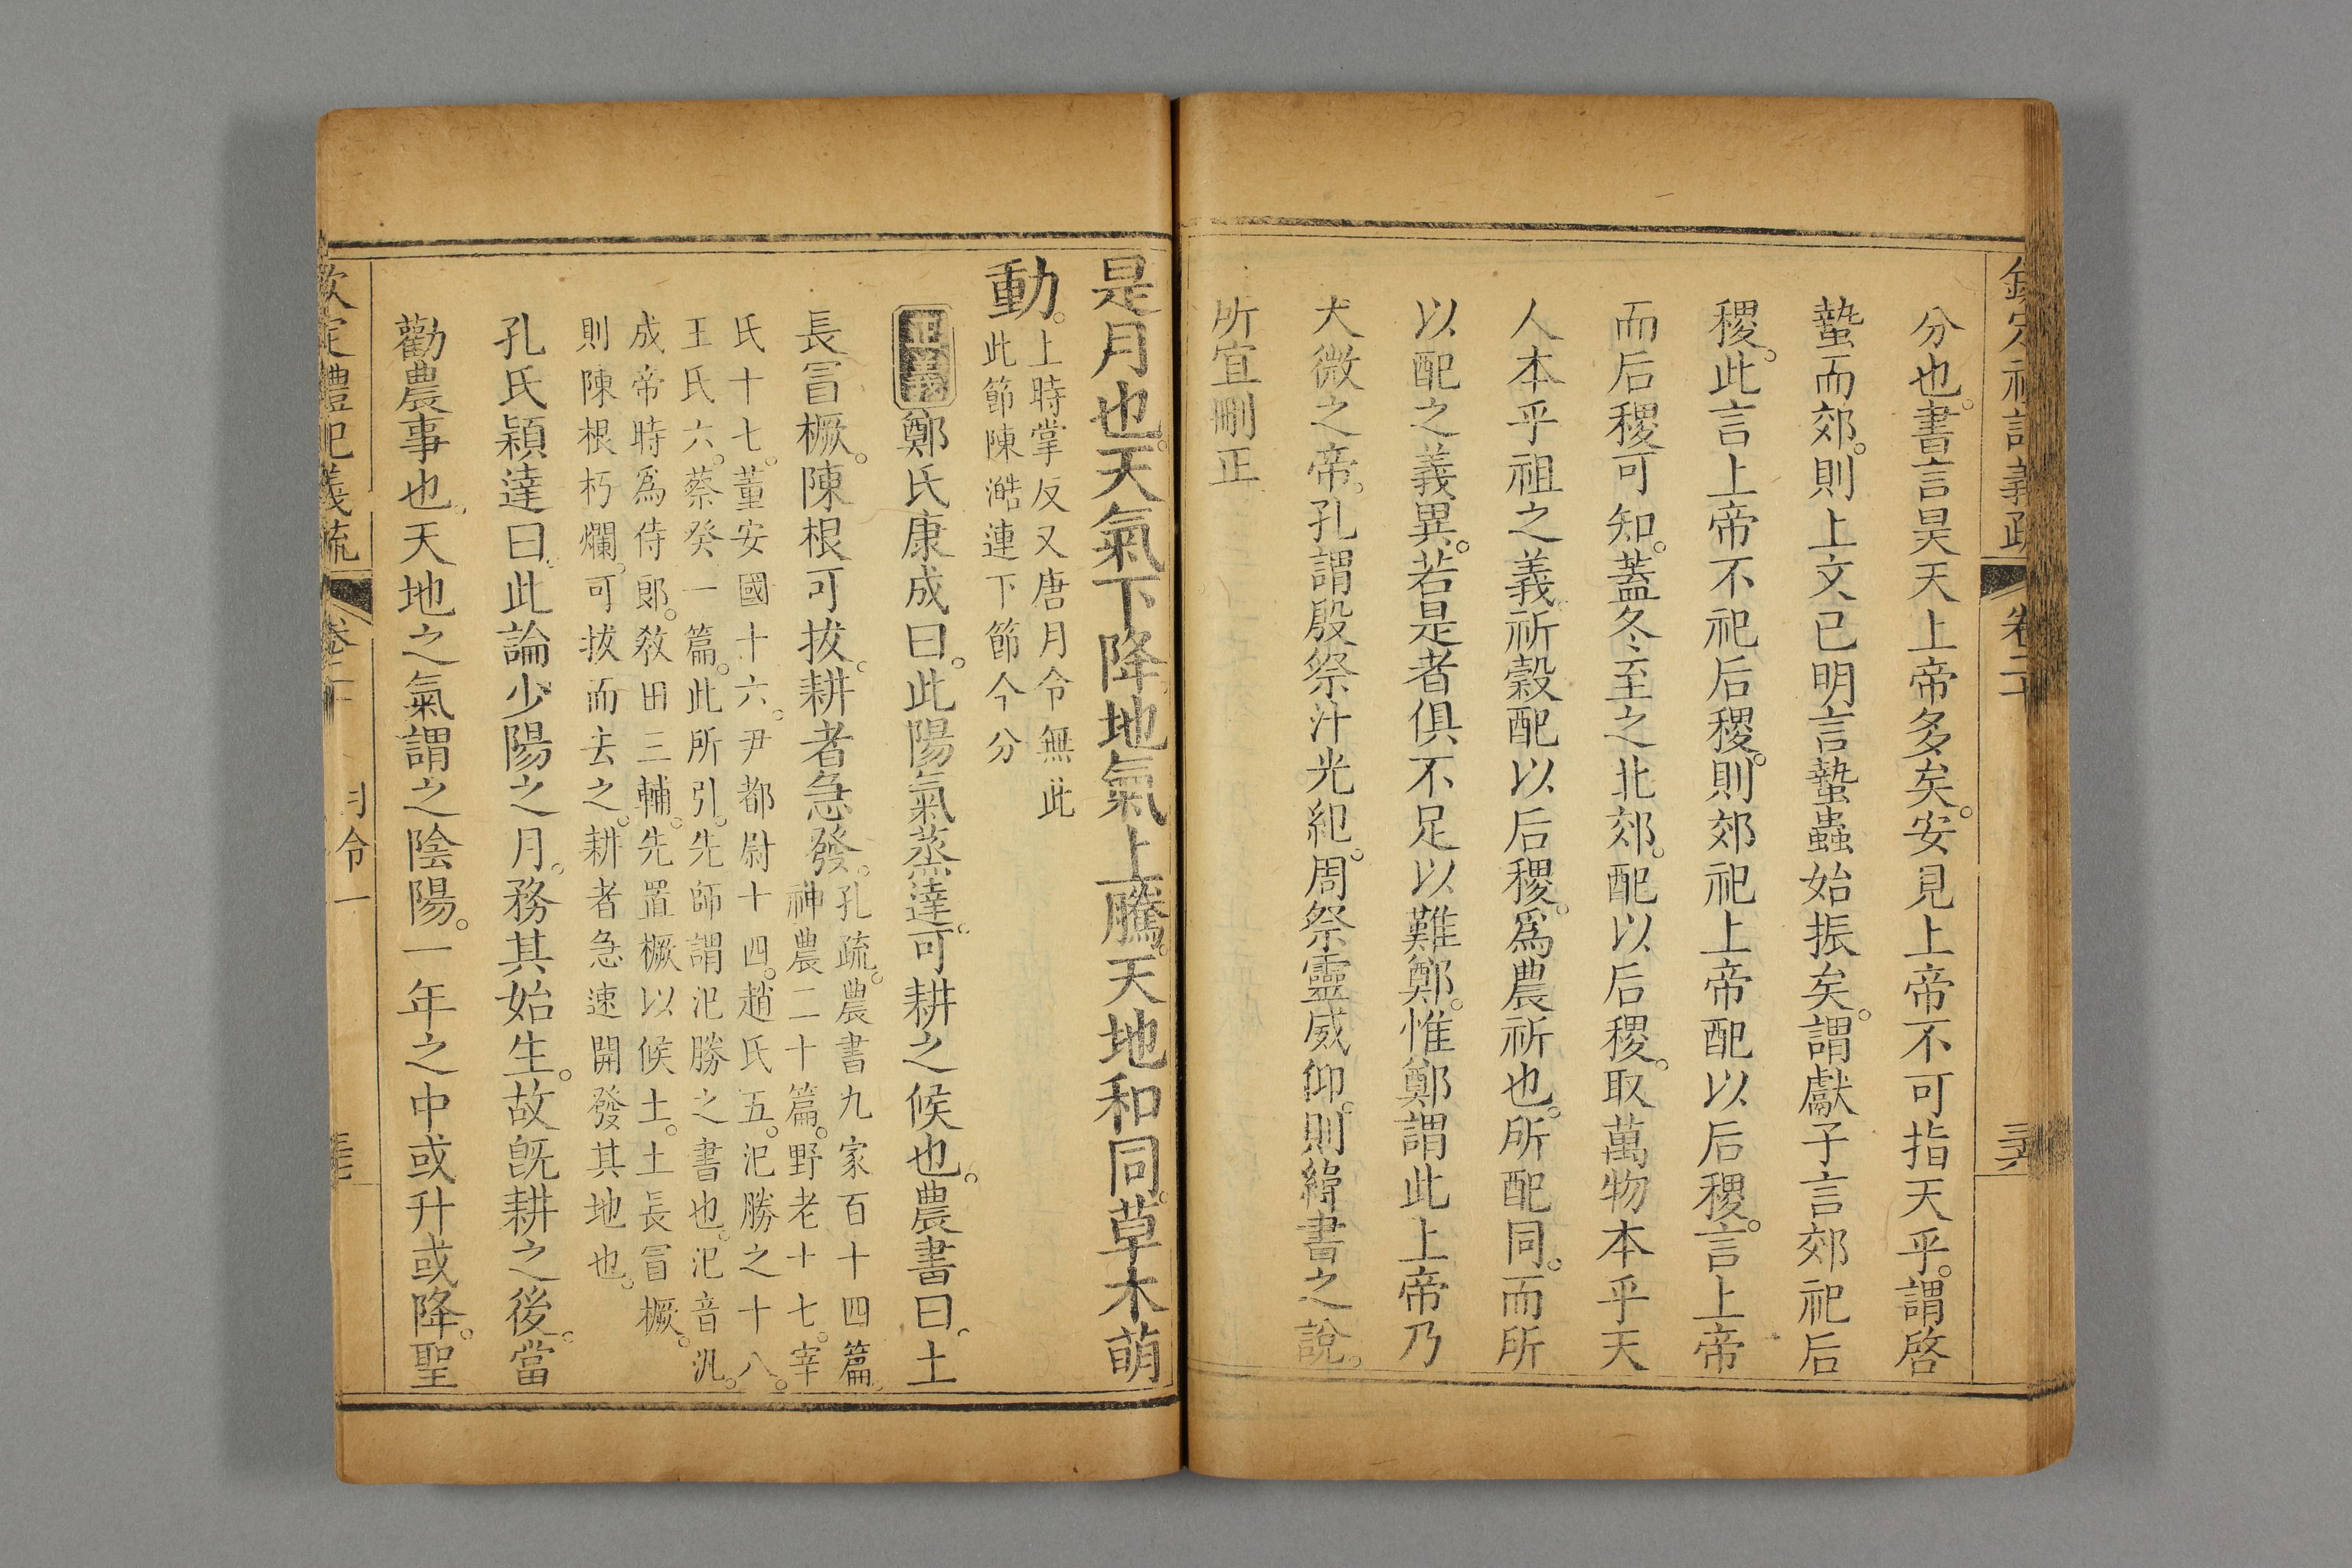 欽定禮記義疏 卷二十
分也。書言昊天上帝多矣。安見上帝不可指天乎。謂啓
蟄而郊。則上文已明言蟄蟲始振矣。謂獻子言郊祀后
稷。此言上帝不祀后稷。則郊祀上帝配以后稷。言上帝
而后稷可知。蓋冬至之北郊。配以后稷。取萬物本乎天
人本乎祖之義。祈穀配以后稷。爲農祈也。所配同。而所
以配之義異。若是者俱不足以難鄭。惟鄭謂此上帝乃
大微之帝。孔謂殷祭汁光紀。周祭靈威仰。則緯書之說。
所宜刪正
是月也。天氣下降。地氣上騰。天地和同。草木萌
動。上時掌反又唐月令無此
此節陳澔連下節今分
正義鄭氏康成曰。此陽氣蒸達。可耕之候也。農書曰。土
長冒橛。陳根可拔。耕者急發。孔疏。農書九家百十四篇。
神農二十篇。野老十七。宰
氏十七。董安國十六。尹都尉十四。趙氏五。氾勝之十八。
王氏六。蔡癸一篇。此所引。先師謂氾勝之書也。氾音汎。
成帝時爲侍郎。敎田三輔。先置橛以候土。土長冒橛。
則陳根朽爛。可拔而去之。耕者急速開發其地也。
孔氏穎達曰。此論少陽之月。務其始生。故旣耕之後。當
勸農事也。天地之氣謂之陰陽。一年之中或升或降。聖
欽定禮記義疏 卷二十 月令一